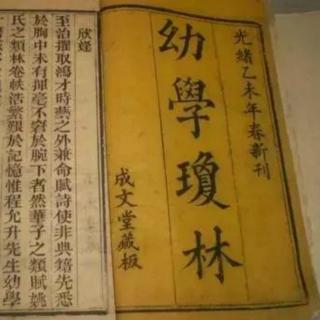 光緒乙未年春新刊
幼學瓊林
成文堂藏板
欣逢
至治撰取鴻才時藝之外兼命賦詩使非典籍先悉
於胸中未有揮毫不窘於腕下者然華子之類賦姚
氏之類林卷帙浩繁艱於記憶惟程允升先生幼學